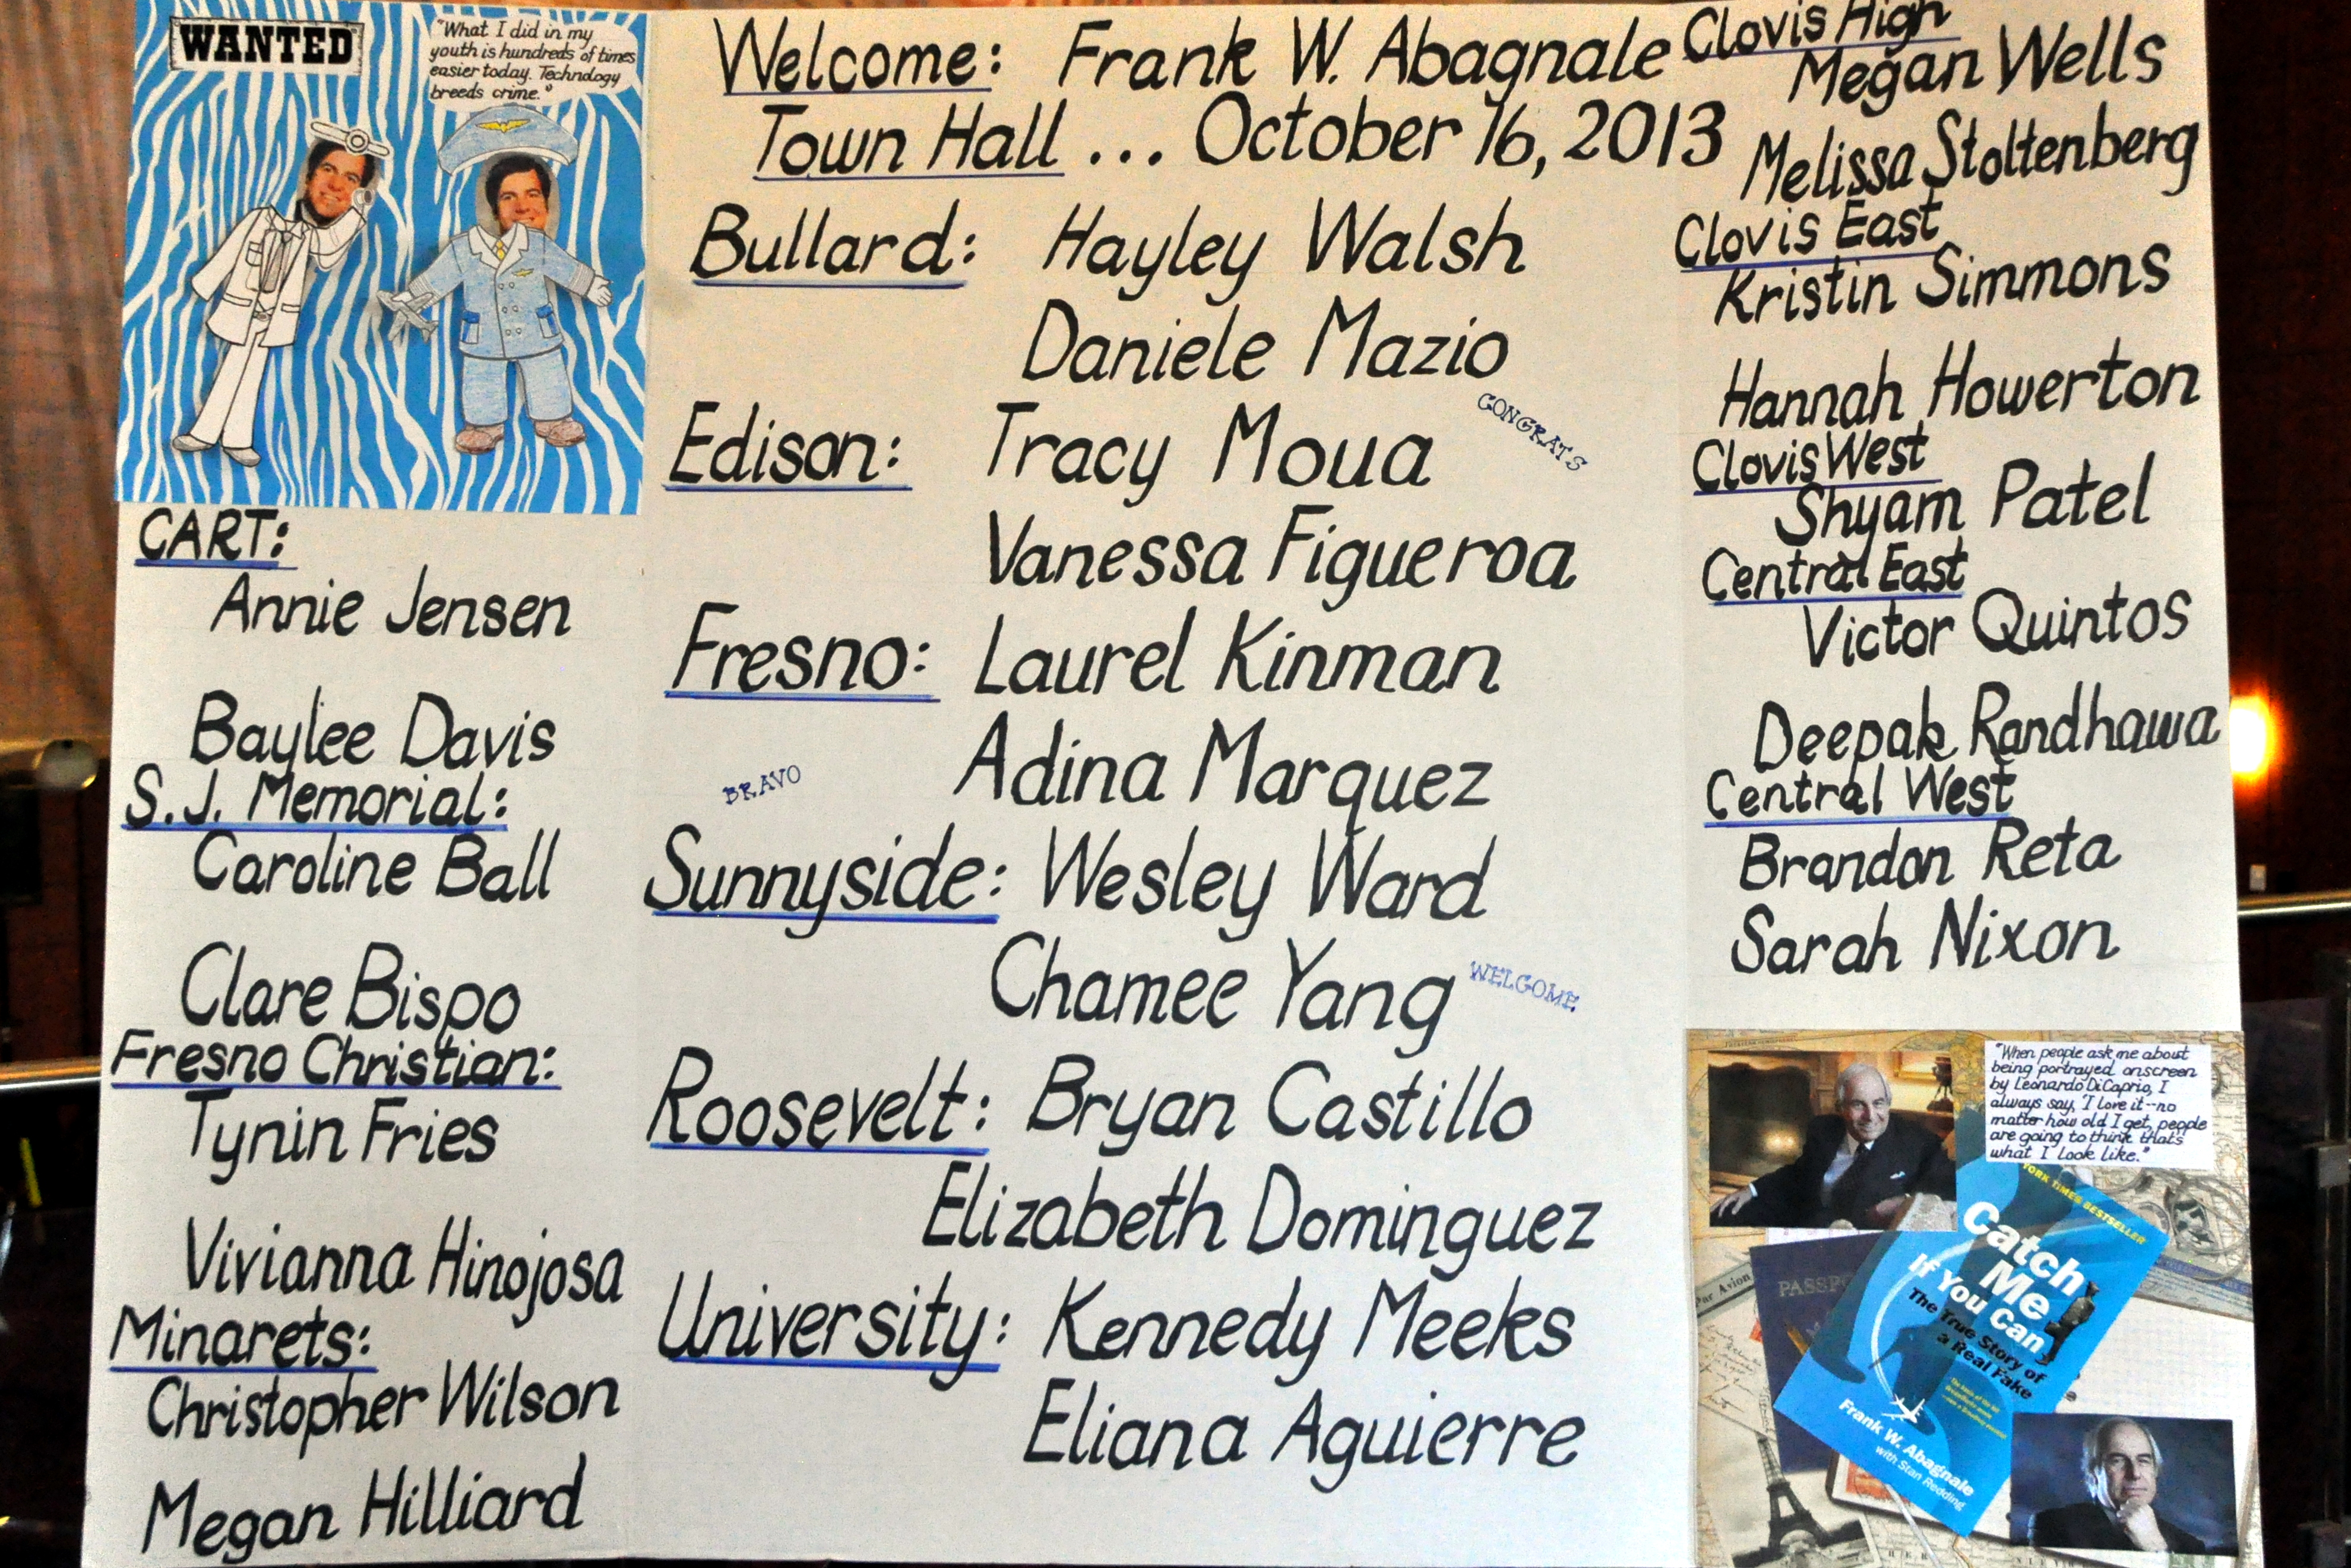 WANTED
"What I did in my
youth is hundreds of times
easier today. Technology
breeds crime."
CART:
Annie Jensen
Baylee Davis
S.J. Memorial:
Caroline Ball
Clare Bispo
Fresno Christian:
Tynin Fries
Vivianna Hinojosa
Minarets:
Christopher Wilson
Megan Hilliard
Welcome: Frank W. Abagnale
Town Hall ... October 16, 2013
Bullard: Hayley Walsh
Daniele Mazio
CONGRATS
Edison: Tracy Moua
Vanessa Figueroa
Fresno: Laurel Kinman
Adina Marquez
BRAVO
Sunnyside: Wesley Ward
Chamee Yang
WELCOME
Roosevelt: Bryan Castillo
Elizabeth Dominguez
University: Kennedy Meeks
Eliana Aguierre
Clovis High
Megan Wells
Melissa Stoltenberg
Clovis East
Kristin Simmons
Hannah Howerton
Clovis West
Shyam Patel
Central East
Victor Quintos
Deepak Randhawa
Central West
Brandon Reta
Sarah Nixon
"When people ask me about
being portrayed onscreen
by Leonardo DiCaprio, I
always say, 'I love it--no
matter how old I get, people
are going to think that's
what I look like."
YORK TIMES BESTSELLER
Catch
Me
If You Can
The True Story of
a Real Fake
Frank W. Abagnale
with Stan Redding
Par Avion
PASSPO